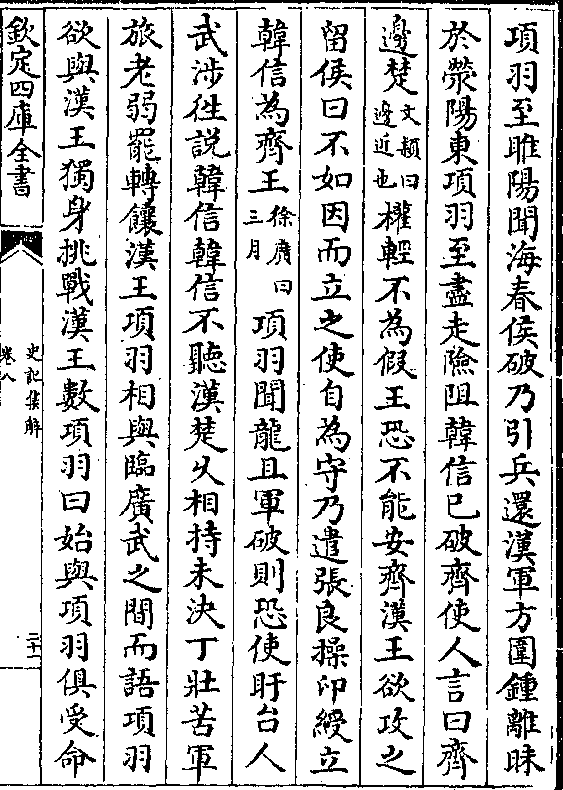 項羽至睢陽聞海春侯破乃引兵還漢軍方圍鍾離昧
於滎陽東項羽至盡走險阻韓信已破齊使人言曰齊
邊楚文穎曰邊近也權輕不為假王恐不能安齊漢王欲攻之
留侯曰不如因而立之使自為守乃遣張良操印綬立
韓信為齊王徐廣曰三月項羽聞龍且軍破則恐使盱台人
武涉徃說韓信韓信不聽漢楚乆相持未決丁壯苦軍
旅老弱罷轉饟漢王項羽相與臨廣武之間而語項羽
欲與漢王獨身挑戰漢王數項羽曰始與項羽俱受命
欽定四庫全書
史記集解
卷八
二十一